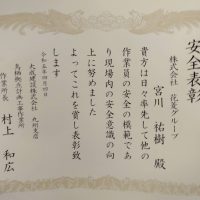 安全表彰
株式会社 花菱グループ
宮川 祐樹 殿
貴方は日々率先して他の
作業員の安全の模範であ
り現場内の安全意識の向
上に努めました
よってこれを賞し表彰致
します
令和五年四月四日
大成建設株式会社 九州支店
鳥栖拠点計画工事作業所
作業所長 村上 和広